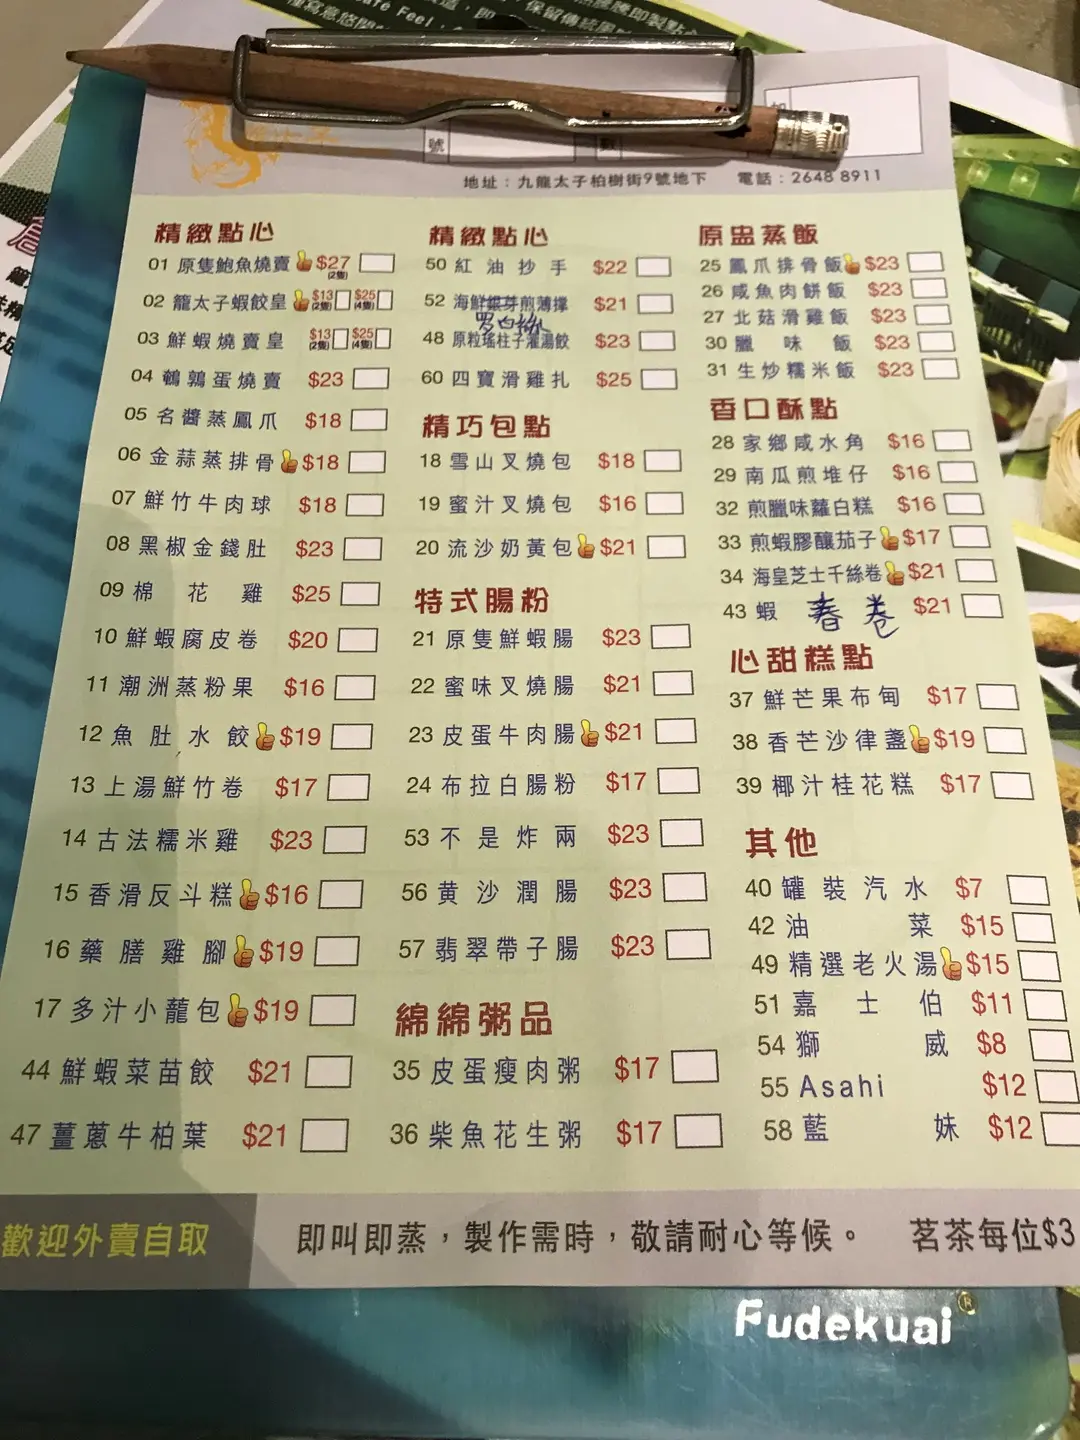 Cafe Feel
保留傳統風
號
地址：九龍太子柏樹街9號地下 電話：2648 8911
精緻點心
01 原隻鮑魚燒賣 $27 (2隻)
02 龍太子蝦餃皇 $13 (2隻) $25 (4隻)
03 鮮蝦燒賣皇 $13 (2隻) $25 (4隻)
04 鵪鶉蛋燒賣 $23
05 名醬蒸鳳爪 $18
06 金蒜蒸排骨 $18
07 鮮竹牛肉球 $18
08 黑椒金錢肚 $23
09 棉花雞 $25
10 鮮蝦腐皮卷 $20
11 潮洲蒸粉果 $16
12 魚肚水餃 $19
13 上湯鮮竹卷 $17
14 古法糯米雞 $23
15 香滑反斗糕 $16
16 藥膳雞腳 $19
17 多汁小蘢包 $19
44 鮮蝦菜苗餃 $21
47 薑蔥牛柏葉 $21
精緻點心
50 紅油抄手 $22
52 海鮮銀芽煎薄撑 $21
48 原粒瑤柱子灌湯餃 $23
60 四寶滑雞扎 $25
精巧包點
18 雪山叉燒包 $18
19 蜜汁叉燒包 $16
20 流沙奶黃包 $21
特式腸粉
21 原隻鮮蝦腸 $23
22 蜜味叉燒腸 $21
23 皮蛋牛肉腸 $21
24 布拉白腸粉 $17
53 不是炸兩 $23
56 黄沙潤腸 $23
57 翡翠帶子腸 $23
綿綿粥品
35 皮蛋瘦肉粥 $17
36 柴魚花生粥 $17
原盅蒸飯
25 鳳爪排骨飯 $23
26 咸魚肉餅飯 $23
27 北菇滑雞飯 $23
30 臘味飯 $23
31 生炒糯米飯 $23
香口酥點
28 家鄉咸水角 $16
29 南瓜煎堆仔 $16
32 煎臘味蘿白糕 $16
33 煎蝦膠釀茄子 $17
34 海皇芝士千絲卷 $21
43 蝦春卷 $21
心甜糕點
37 鮮芒果布甸 $17
38 香芒沙律盞 $19
39 椰汁桂花糕 $17
其他
40 罐裝汽水 $7
42 油菜 $15
49 精選老火湯 $15
51 嘉士伯 $11
54 獅威 $8
55 Asahi $12
58 藍妹 $12
歡迎外賣自取
即叫即蒸，製作需時，敬請耐心等候。 茗茶每位$3
Fudekuai®